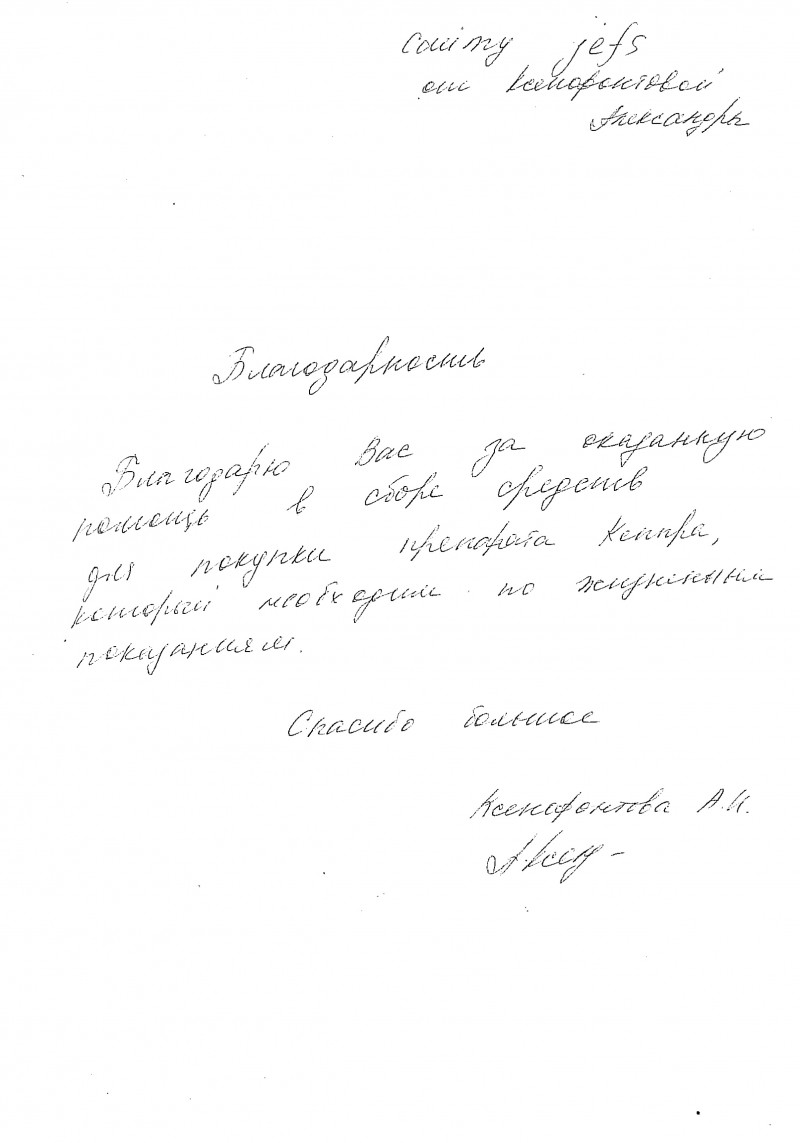 Сайту jefs
от Ксенофонтовой
Александры
Благодарность
Благодарю Вас за оказанную
помощь в сборе средств
для покупки препарата Кеппра,
который необходим по жизненным
показаниям.
Спасибо большое
Ксенофонтова А.И.